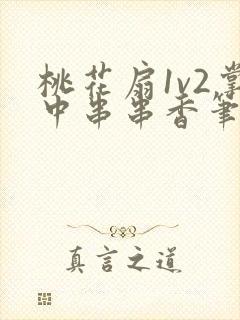 桃花扇1v2掌
中串串香笔
真言之道